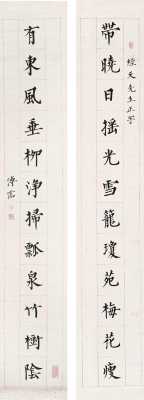 帶曉日搖光雪籠瓊苑梅花瘦
經天先生正字
有東風垂柳淨掃瓢泉竹樹陰